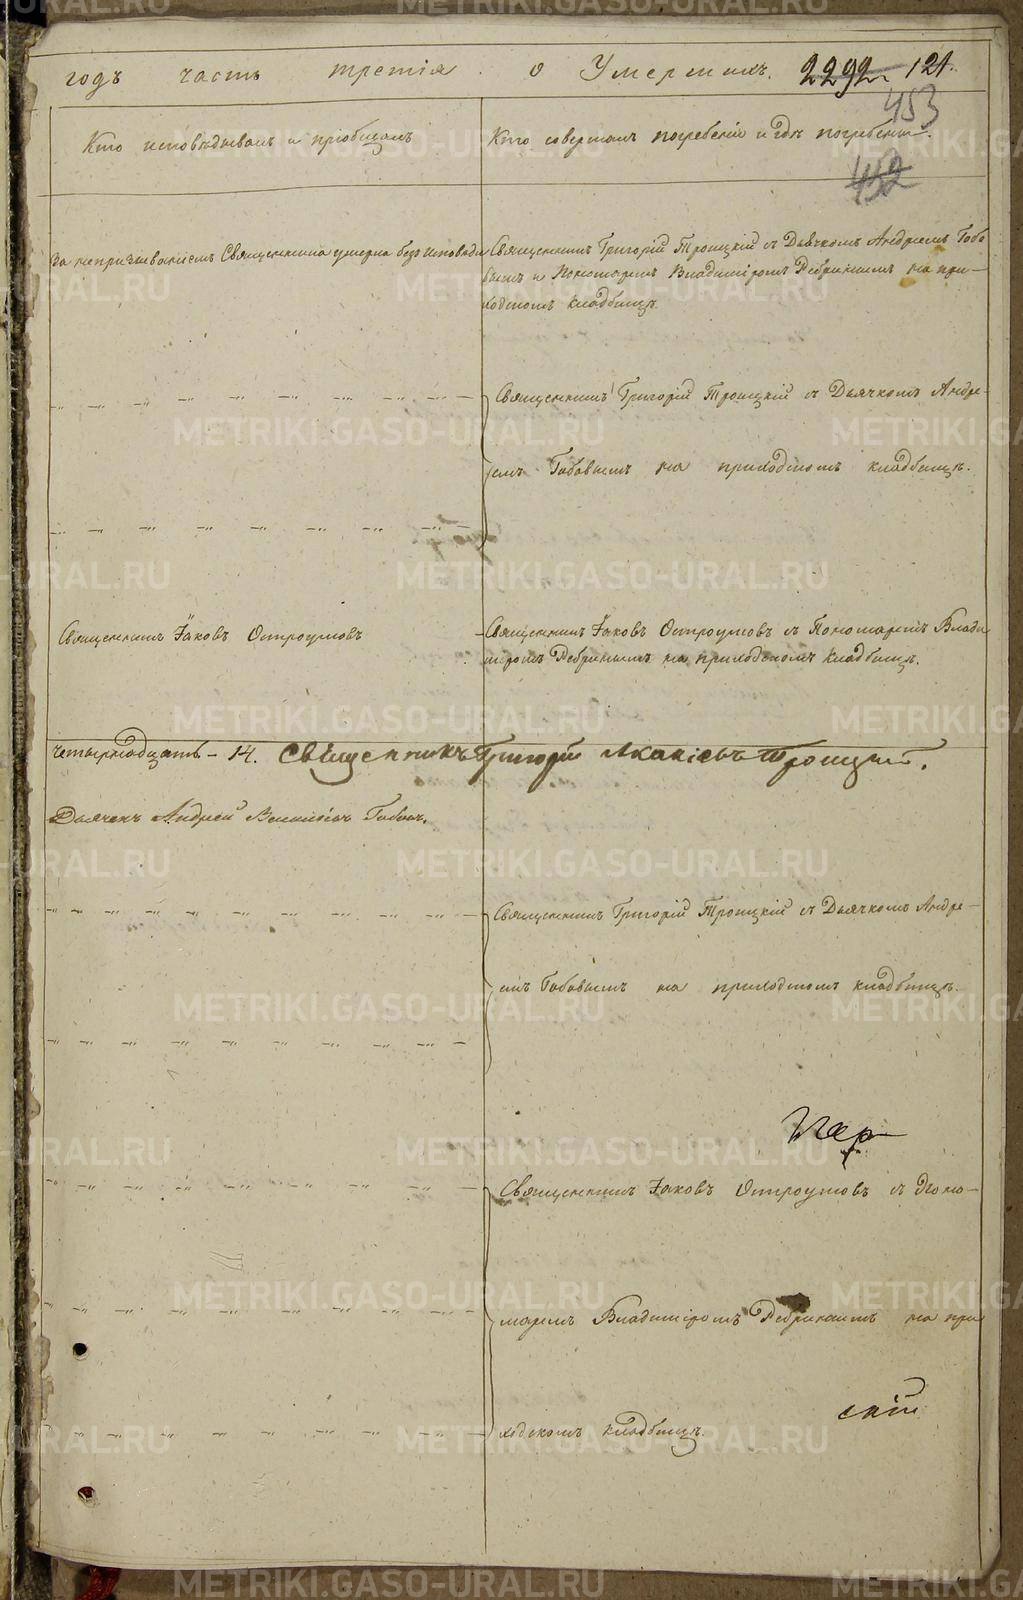 годъ часть третія о Умершихъ. 2292 121.
453
Кто исповѣдывалъ и пріобщалъ
Кто совершалъ погребеніе и гдѣ погребены.
452
За непризываніемъ Священника умерла безъ исповѣди
Священникъ Григорій Троицкій съ Дьячкомъ Андреемъ Бабо
вымъ и Пономаремъ Владиміромъ Ребринымъ на при-
ходскомъ кладбищѣ.
Священникъ Григорій Троицкій съ Дьячкомъ Андре-
емъ Бабовымъ на приходскомъ кладбищѣ.
Священникъ Іаковъ Остроумовъ
Священникъ Іаковъ Остроумовъ съ Пономаремъ Влади
міромъ Ребринымъ на приходскомъ кладбищѣ.
четырнадцать - 14. Священникъ Григорій Акакіевъ Троицкій.
Дьячекъ Андрей Бабовъ.
Священникъ Григорій Троицкій съ Дьячкомъ Андре-
емъ Бабовымъ на приходскомъ кладбищѣ.
Священникъ Іаковъ Остроумовъ съ Поно-
маремъ Владиміромъ Ребринымъ на при
скій
ходскомъ кладбищѣ.
METRIKI.GASO-URAL.RU